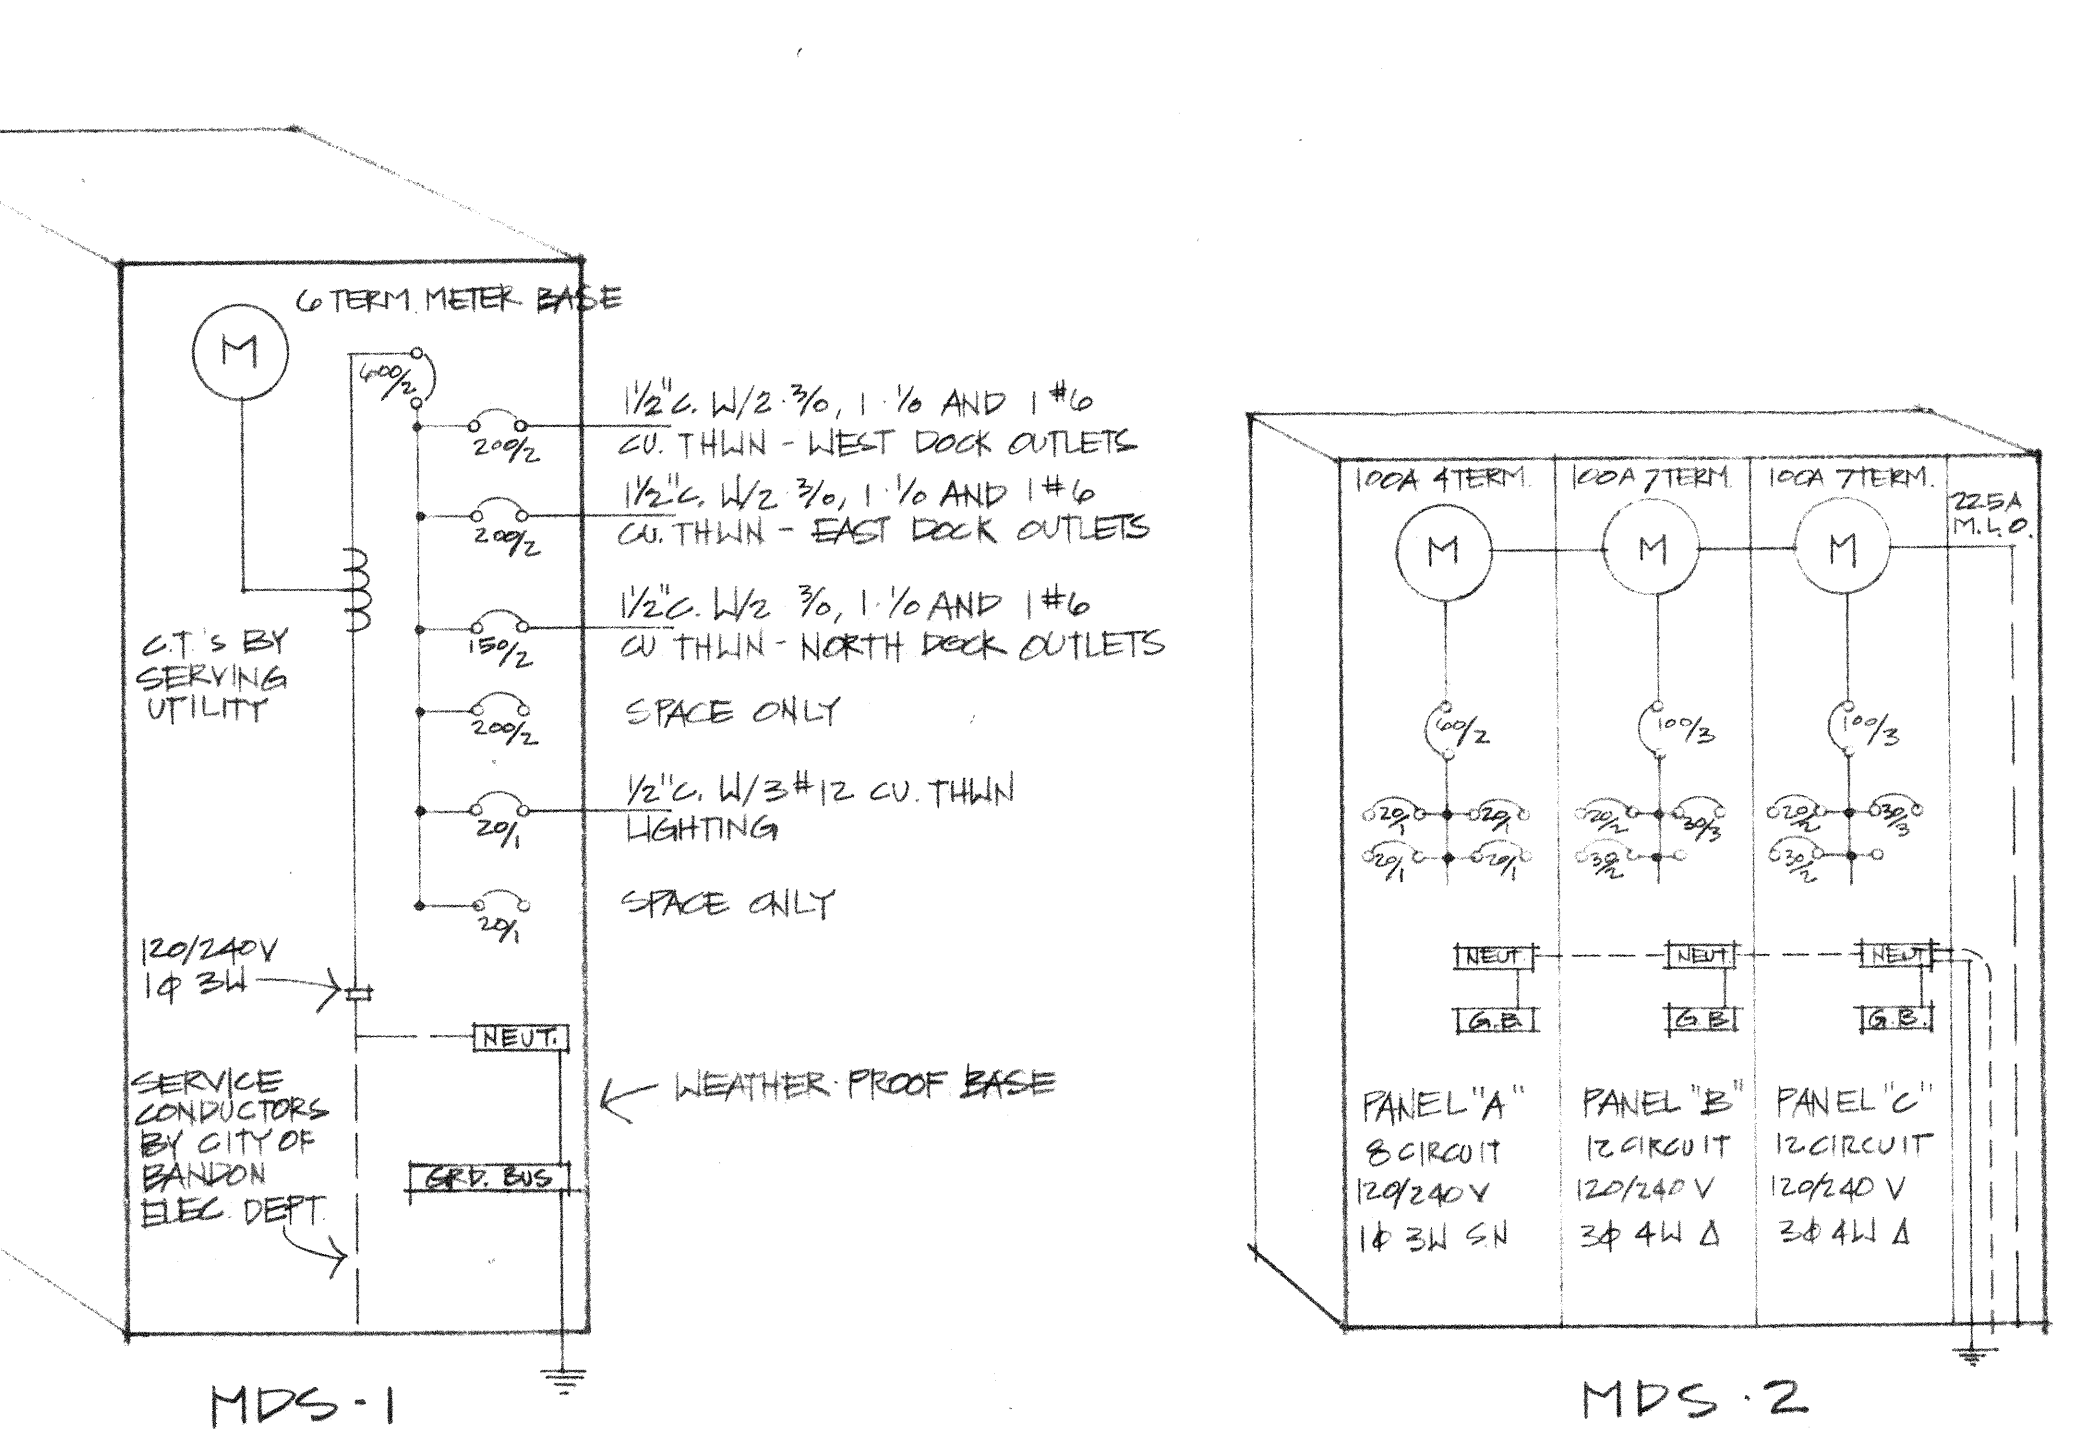 6 TERM. METER BASE
M
600/2
200/2
1½"C. W/2 · 3/0, 1 · 1/0 AND 1 #6
CU. THWN - WEST DOCK OUTLETS
200/2
1½"C. W/2 · 3/0, 1 · 1/0 AND 1 #6
CU. THWN - EAST DOCK OUTLETS
150/2
1½"C. W/2 3/0, 1 · 1/0 AND 1 #6
CU THWN - NORTH DOCK OUTLETS
200/2
SPACE ONLY
20/1
½"C. W/3 #12 CU. THWN
LIGHTING
20/1
SPACE ONLY
C.T.'S BY
SERVING
UTILITY
120/240V
1ϕ 3W
NEUT.
SERVICE
CONDUCTORS
BY CITY OF
BANDON
ELEC. DEPT.
WEATHER · PROOF BASE
GRD. BUS
MDS - 1
100A 4 TERM.
100A 7 TERM.
100A 7 TERM.
225A
M.L.O.
M
M
M
60/2
100/3
100/3
20/1 20/1
20/1 20/1
20/2 30/3
30/2
20/2 30/3
30/2
NEUT.
NEUT
NEUT
G.B.
G.B
G.B.
PANEL "A"
8 CIRCUIT
120/240 V
1ϕ 3W S.N
PANEL "B"
12 CIRCUIT
120/240 V
3ϕ 4W Δ
PANEL "C"
12 CIRCUIT
120/240 V
3ϕ 4W Δ
MDS · 2